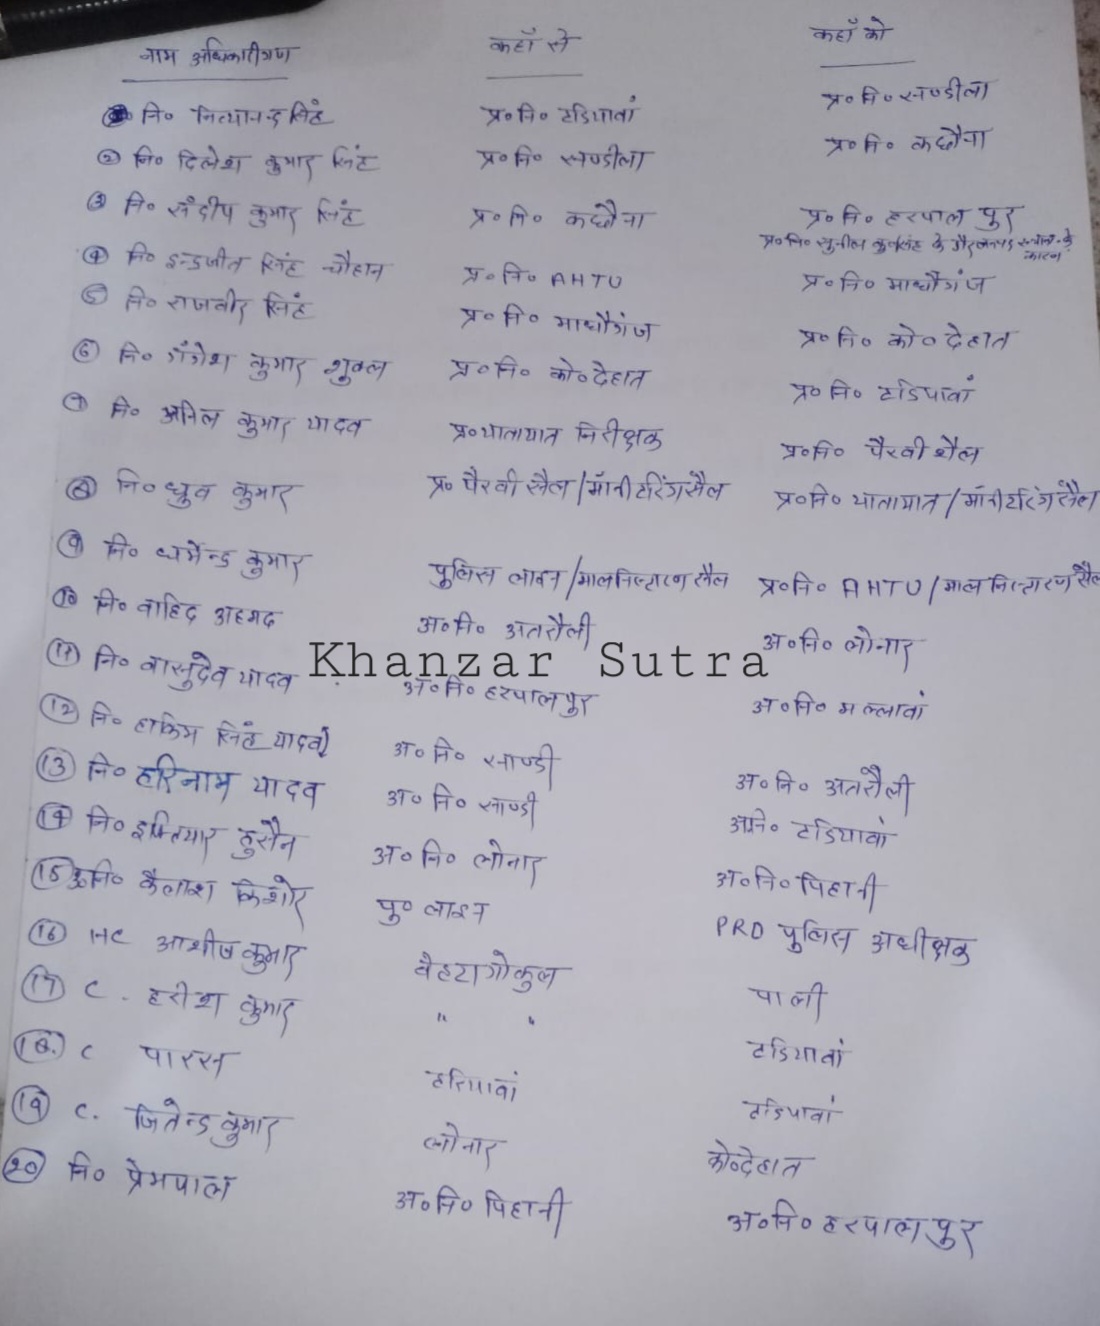 नाम अधिकारीगण कहाँ से कहाँ को
① नि० नित्यानन्द सिंह प्र०नि० टडियावां प्र०नि० सण्डीला
② नि० दिलेश कुमार सिंह प्र०नि० सण्डीला प्र०नि० कछौना
③ नि० संदीप कुमार सिंह प्र०नि० कछौना प्र०नि० हरपालपुर
प्र०नि० सुनील कु०सिंह के गैरजनपद स्थाना० के कारण
④ नि० इन्द्रजीत सिंह चौहान प्र०नि० AHTU प्र०नि० माधौगंज
⑤ नि० राजवीर सिंह प्र०नि० माधौगंज प्र०नि० को० देहात
⑥ नि० गंगेश कुमार शुक्ल प्र०नि० को०देहात प्र०नि० टडियावां
⑦ नि० अनिल कुमार यादव प्र०यातायात निरीक्षक प्र०नि० पैरवी शैल
⑧ नि० ध्रुव कुमार प्र० पैरवी सैल/मॉनीटरिंग सैल प्र०नि० यातायात/मॉनीटरिंग सैल
⑨ नि० धर्मेन्द्र कुमार पुलिस लाइन/माल निस्तारण सैल प्र०नि० AHTU/माल निस्तारण सैल
⑩ नि० वाहिद अहमद अ०नि० अतरौली अ०नि० लोनार
⑪ नि० वासुदेव यादव अ०नि० हरपालपुर अ०नि० मल्लावां
Khanzar Sutra
⑫ नि० हाकिम सिंह यादव अ०नि० साण्डी अ०नि० अतरौली
⑬ नि० हरिनाम यादव अ०नि० साण्डी अ०नि० टडियावां
⑭ नि० हुसैन अ०नि० लोनार अ०नि० पिहानी
⑮ उ०नि० कैलाश किशोर पु० लाइन PRO पुलिस अधीक्षक
⑯ HC आशीष कुमार बेहटागोकुल पाली
⑰ C. हरीश कुमार " " टडियावां
⑱ C पारस हरियावां टडियावां
⑲ C. जितेन्द्र कुमार लोनार को०देहात
⑳ नि० प्रेमपाल अ०नि० पिहानी अ०नि० हरपालपुर